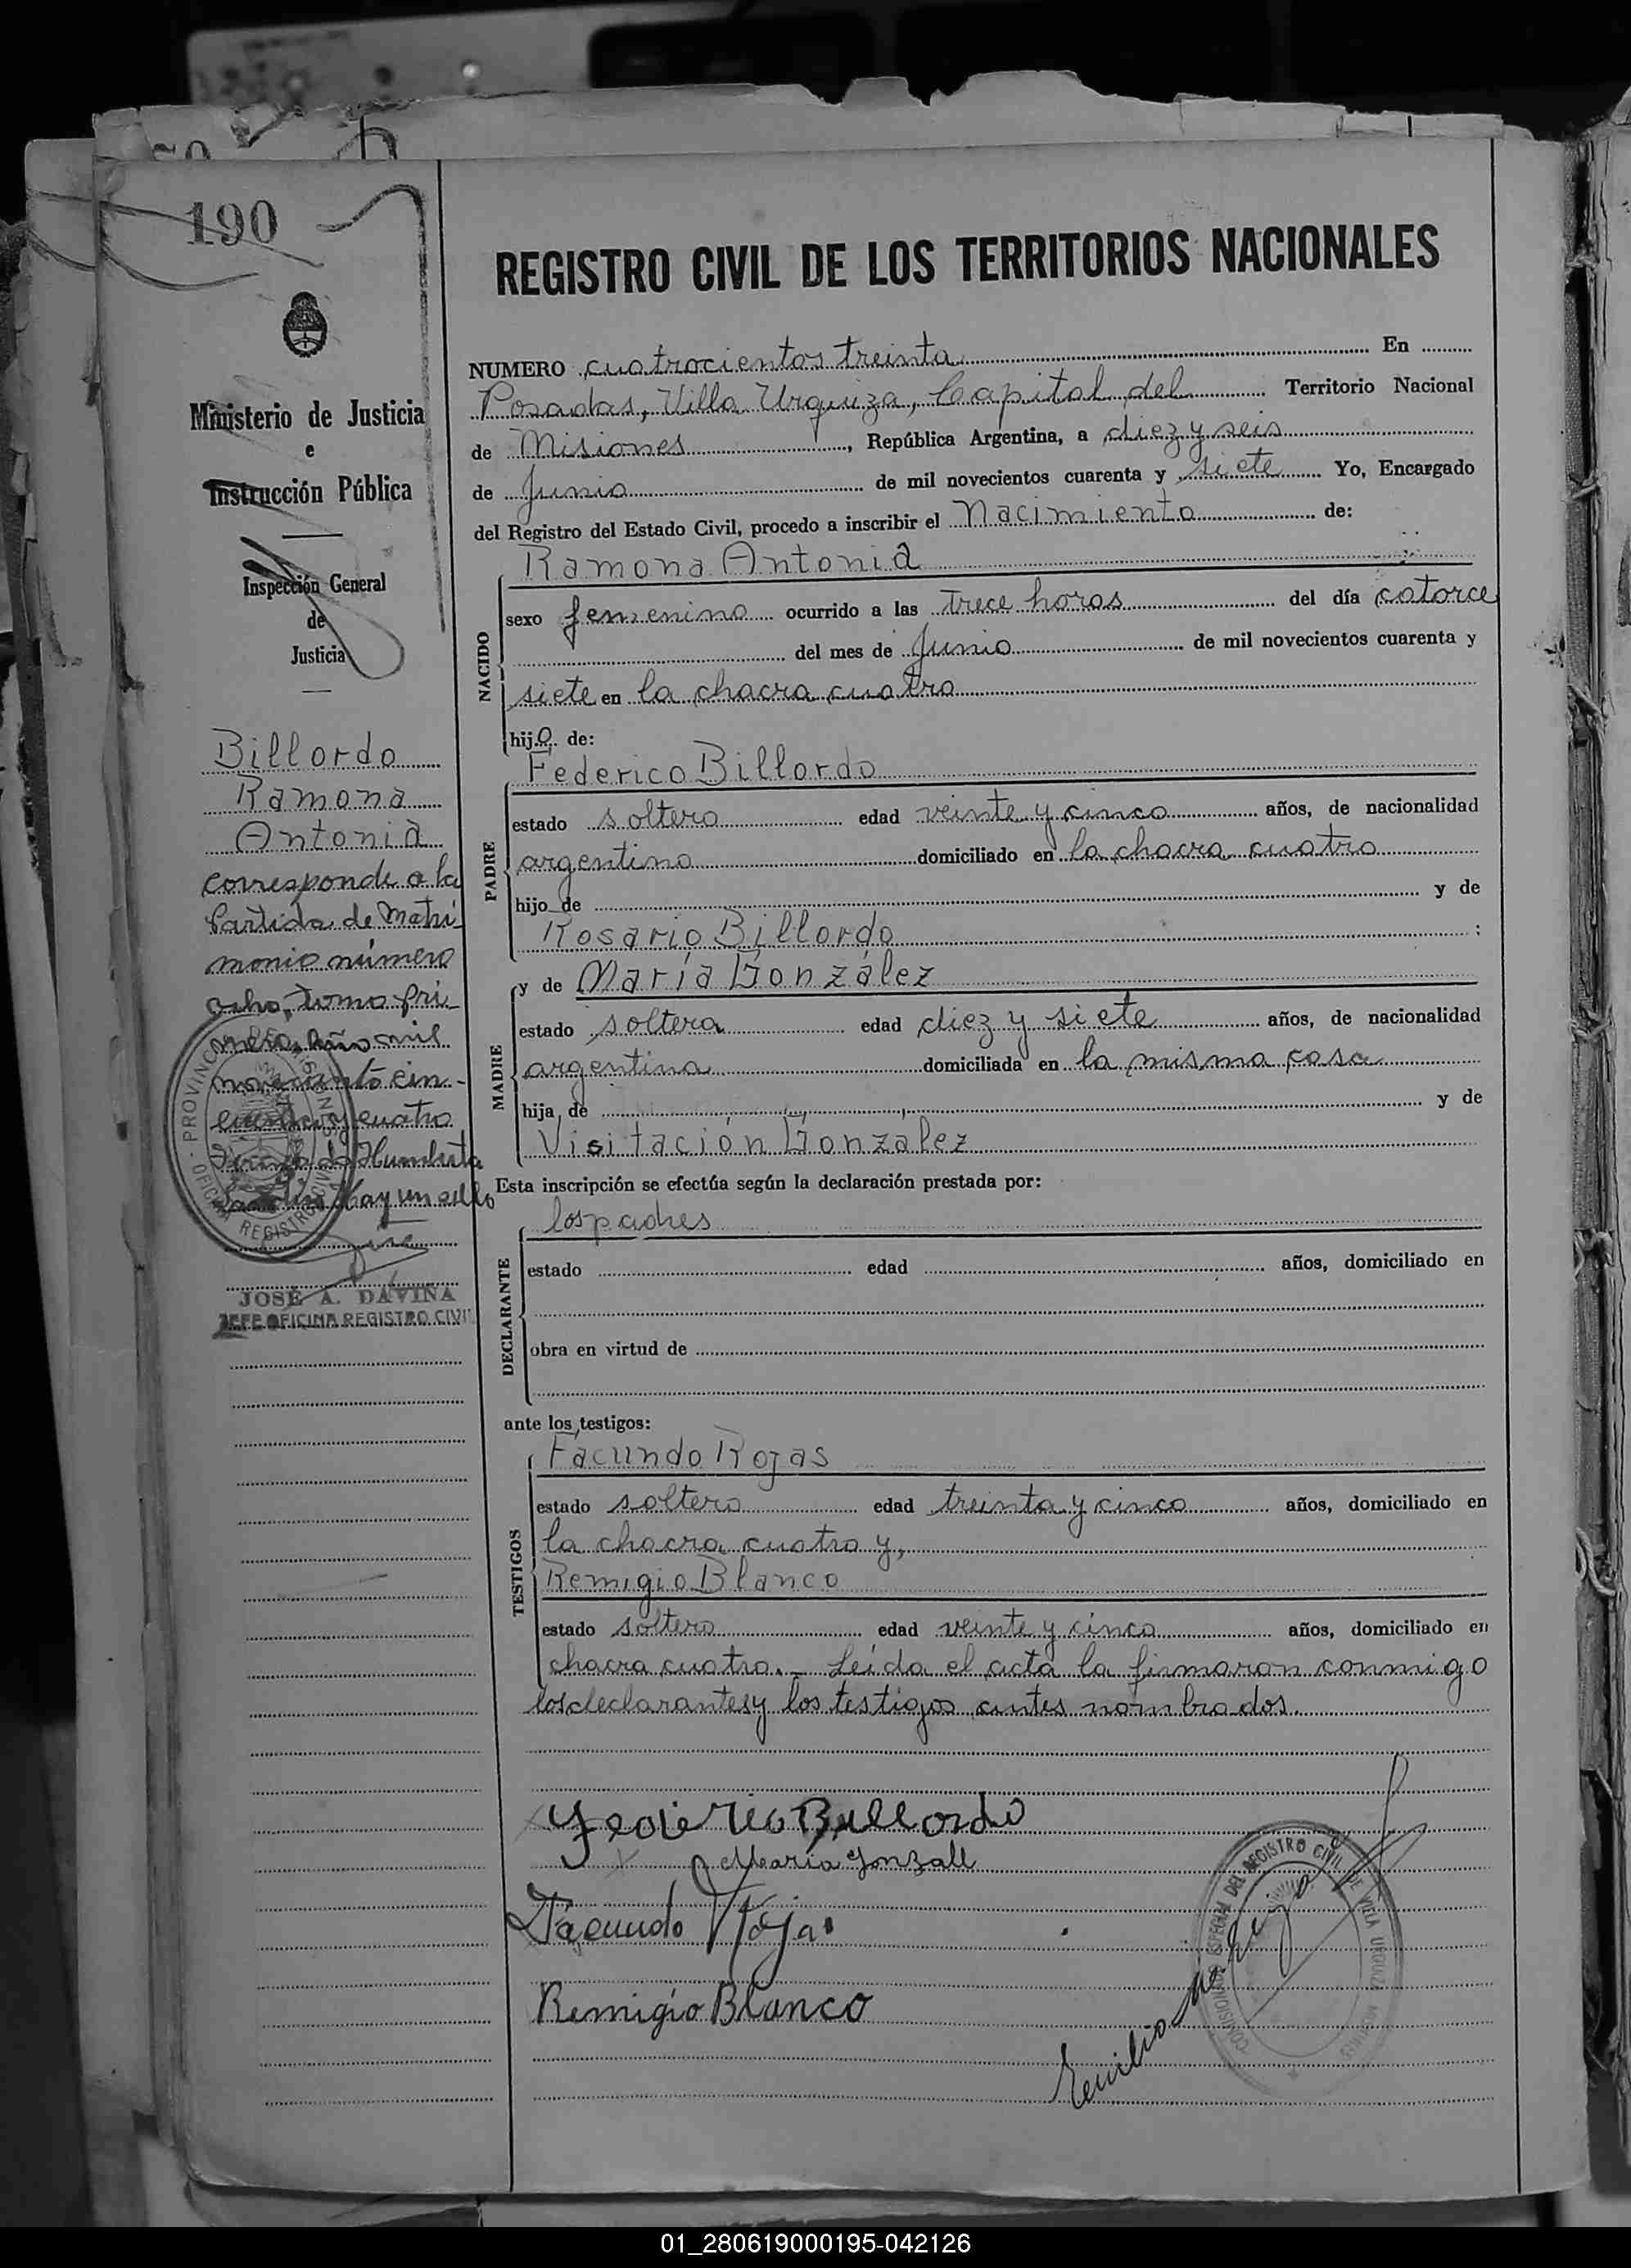 190
REGISTRO CIVIL DE LOS TERRITORIOS NACIONALES
Ministerio de Justicia
e
Instrucción Pública
Inspección General
de
Justicia
NUMERO cuatrocientos treinta En
Posadas, Villa Urquiza, Capital del Territorio Nacional
de Misiones, República Argentina, a diez y seis
de Junio de mil novecientos cuarenta y siete Yo, Encargado
del Registro del Estado Civil, procedo a inscribir el Nacimiento de:
NACIDO
Ramona Antonia
sexo femenino ocurrido a las trece horas del día catorce
del mes de Junio de mil novecientos cuarenta y
siete en la chacra cuatro
hija de:
PADRE
Federico Billordo
estado soltero edad veinte y cinco años, de nacionalidad
argentino domiciliado en la chacra cuatro
hijo de y de
Rosario Billordo ;
MADRE
y de María González
estado soltera edad diez y siete años, de nacionalidad
argentina domiciliada en la misma casa
hija de y de
Visitación González
Esta inscripción se efectúa según la declaración prestada por:
DECLARANTE
los padres
estado edad años, domiciliado en
obra en virtud de
ante los testigos:
TESTIGOS
Facundo Rojas
estado soltero edad treinta y cinco años, domiciliado en
la chacra cuatro y,
Remigio Blanco
estado soltero edad veinte y cinco años, domiciliado en
chacra cuatro.- Leída el acta la firmaron conmigo
los declarantes y los testigos antes nombrados.
Federico Billordo
María Gonzall
Facundo Rojas
Remigio Blanco
Emilio
COMISIONADO ESPECIAL DEL REGISTRO CIVIL DE VILLA URQUIZA MISIONES
Billordo
Ramona
Antonia
corresponde a la
Partida de Matri-
monio número
ocho, tomo pri-
mero, Año mil
novecientos cin-
cuenta y cuatro
Humberto
Hay un sello
PROVINCIA OFICINA REGISTRO CIVIL
JOSÉ A. DAVIÑA
JEFE OFICINA REGISTRO CIVIL
01_280619000195-042126